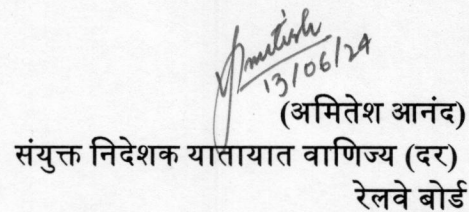 Amitesh
13/06/24
(अमितेश आनंद)
संयुक्त निदेशक यातायात वाणिज्य (दर)
रेलवे बोर्ड